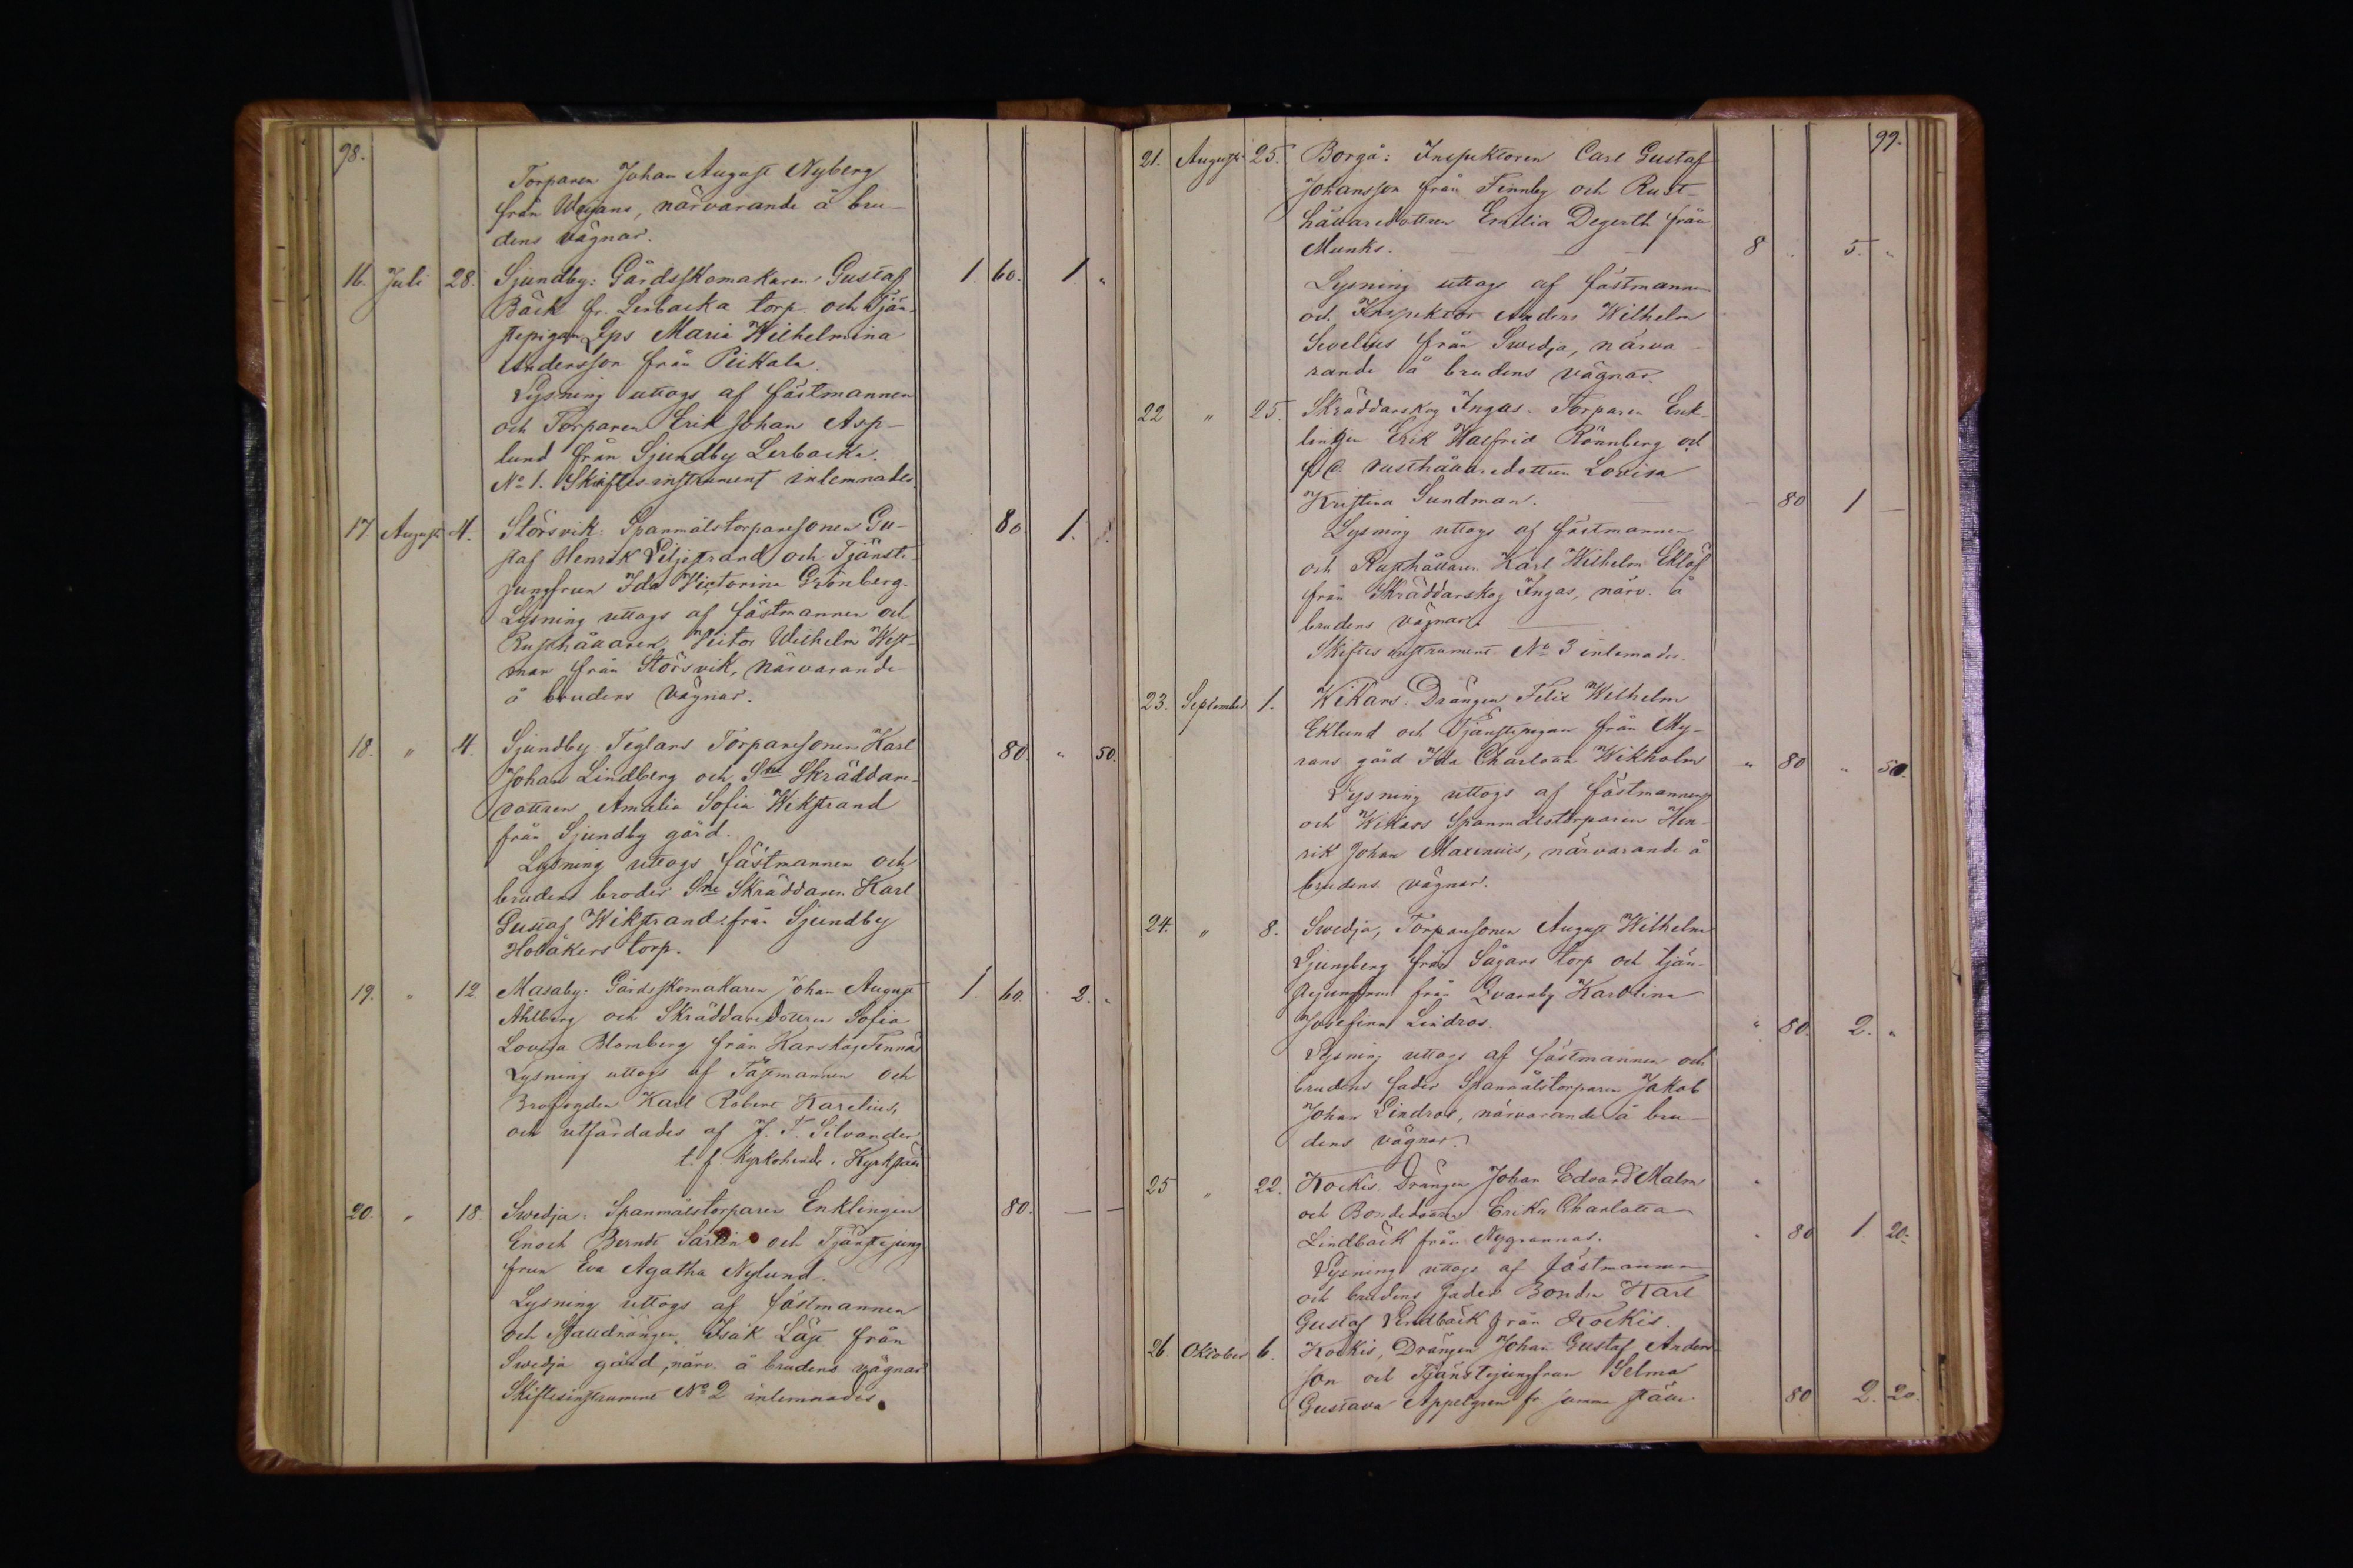 98.
Torparen Johan August Nyberg
från Werjans, närvarande å bru-
dens vägnar.
16. Juli 28. Sjundby: Gårdsskomakaren Gustaf 1. 60. 1. "
Bäck fr. Lerbacka torp och Tjän-
stepigan Eps Maria Wilhelmina
Andersson från Peikala.
Lysning uttogs af fästmannen
och Torparen Erik Johan Asp-
lund från Sjundby Lerbacka.
No 1. Skiftesinstrument inlemnades.
17. August 4. Störsvik: Spanmålstorparesonen Gu- 80. 1.
staf Henrik Liljestrand och Tjänste-
jungfrun Ida Victorina Grönberg.
Lysning uttogs af fästmannen och
Rusthållaren Victor Wilhelm West-
man från Störsvik, närvarande
å brudens vägnar.
18. " 4. Sjundby: Teglars Torparesonen Karl 80. " 50.
Johan Lindberg och Sne Skräddare-
dottren Amalia Sofia Wikstrand
från Sjundby gård.
Lysning uttogs fästmannen och
brudens broder Sne Skräddaren Karl
Gustaf Wikstrand från Sjundby
Hobäkers torp.
19. " 12 Masaby: Gårdsskomakaren Johan August 1. 60. 2. "
Ahlberg och Skräddaredottren Sofia
Lovisa Blomberg från Karskog Finnäs
Lysning uttogs af Fästmannen och
Brofogden Karl Robert Karelius,
och utfärdades af J. F. Silvander
t. f. Kyrkoherde i Kyrkslätt
20. " 18. Swedja: Spanmålstorparen Enklingen 80. — —
Enoch Berndt Sarlin och Tjänstejung-
frun Eva Agatha Nylund.
Lysning uttogs af fästmannen
och Stalldrängen Isak Läst från
Swedja gård, närv. å brudens vägnar
Skiftesinstrument No 2 inlemnades.
99.
21. August 25. Borgå: Inspektoren Carl Gustaf
Johansson från Finnby och Rust-
hållaredottren Emilia Degerth från
Munks. — — — 8 " 5. "
Lysning uttogs af fästmannen
och Inspektor Anders Wilhelm
Sevelius från Swedja, närva-
rande å brudens vägnar.
22 " 25. Skräddarskog Ingas. Torparen Enk-
lingen Erik Walfrid Rönnberg och
f.d. rusthållaredottren Lovisa
Kristina Sundman. — — 80 1 —
Lysning uttogs af fästmannen
och Rusthållaren Karl Wilhelm Eklöf
från Skräddarskog Ingas, närv. å
brudens vägnar. —
Skiftesinstrument No 3 inlemnades.
23. September 1. Wikars. Drängen Felix Wilhelm
Eklund och Tjänstepigan från My-
rans gård Ida Charlotta Wikholm " 80 " 50.
Lysning uttogs af fästmannen
och Wikars Spanmålstorparen Hen-
rik Johan Maxenius, närvarande å
brudens vägnar.
24. " 8. Swedja, Torparesonen August Wilhelm
Ljungberg från Sågars torp och tjän-
stejungfrun från Qvarnby Karolina
Josefina Lindros. " 80. 2. "
Lysning uttogs af fästmannen och
brudens fader Spanmålstorparen Jakob
Johan Lindros, närvarande å bru-
dens vägnar.
25 " 22. Kockis. Drängen Johan Edvard Malm
och Bondedottren Erika Charlotta
Lindbäck från Nygrannas. " 80 1. 20.
Lysning uttogs af fästmannen
och brudens fader Bonden Karl
Gustaf Lindbäck från Kockis.
26 Oktober 6. Kockis, Drängen Johan Gustaf Anders-
son och Tjänstejungfrun Selma
Gustava Appelgren fr. samma ställe 80 2. 20.